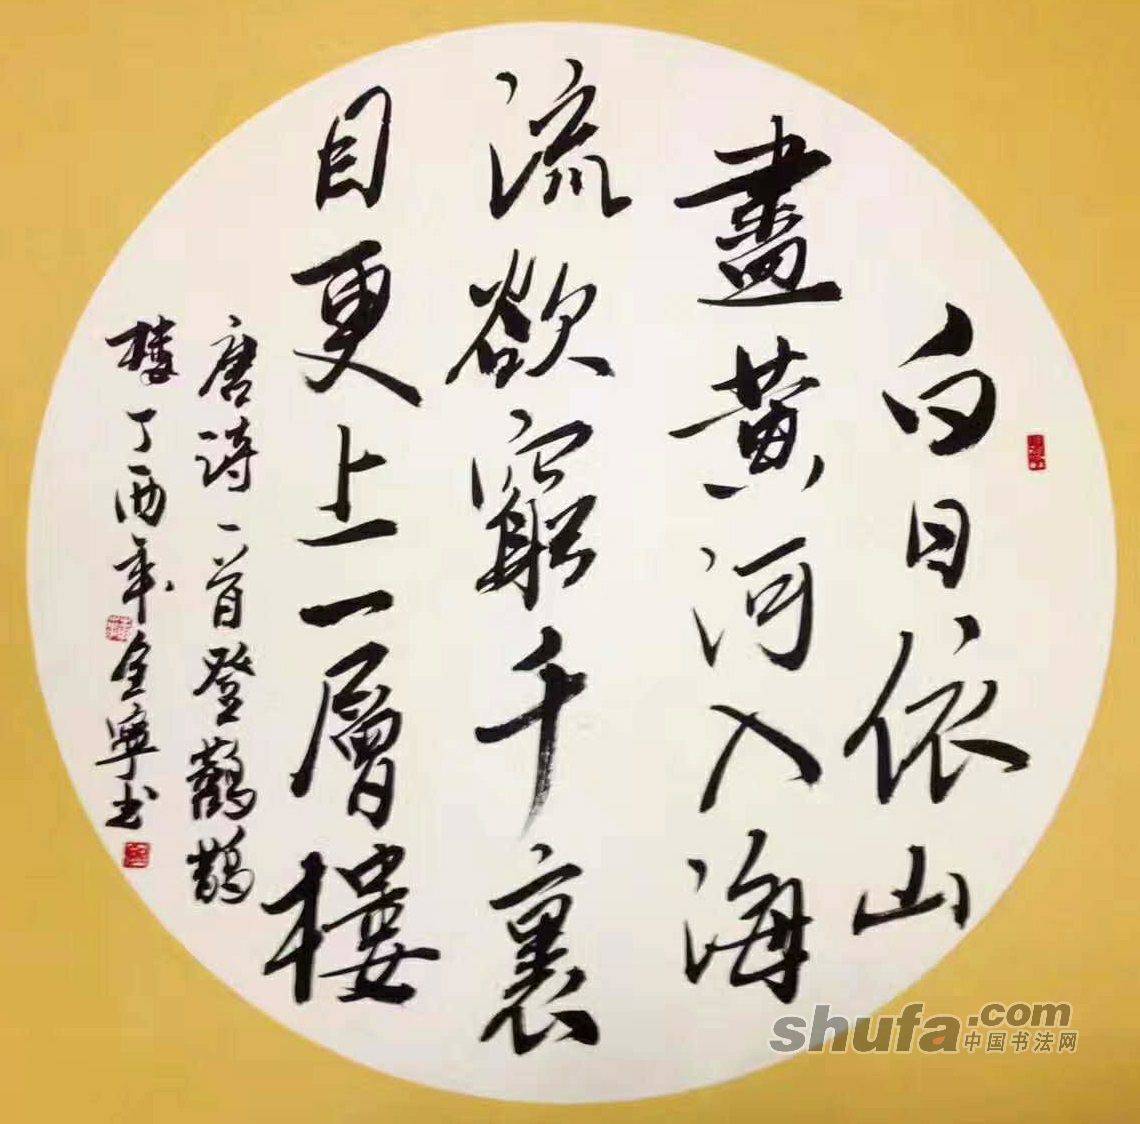 白日依山
盡黄河入海
流欲窮千裏
目更上一層樓
唐詩一首登鸛鵲
樓丁酉年金寧书
shufa.com
中国书法网